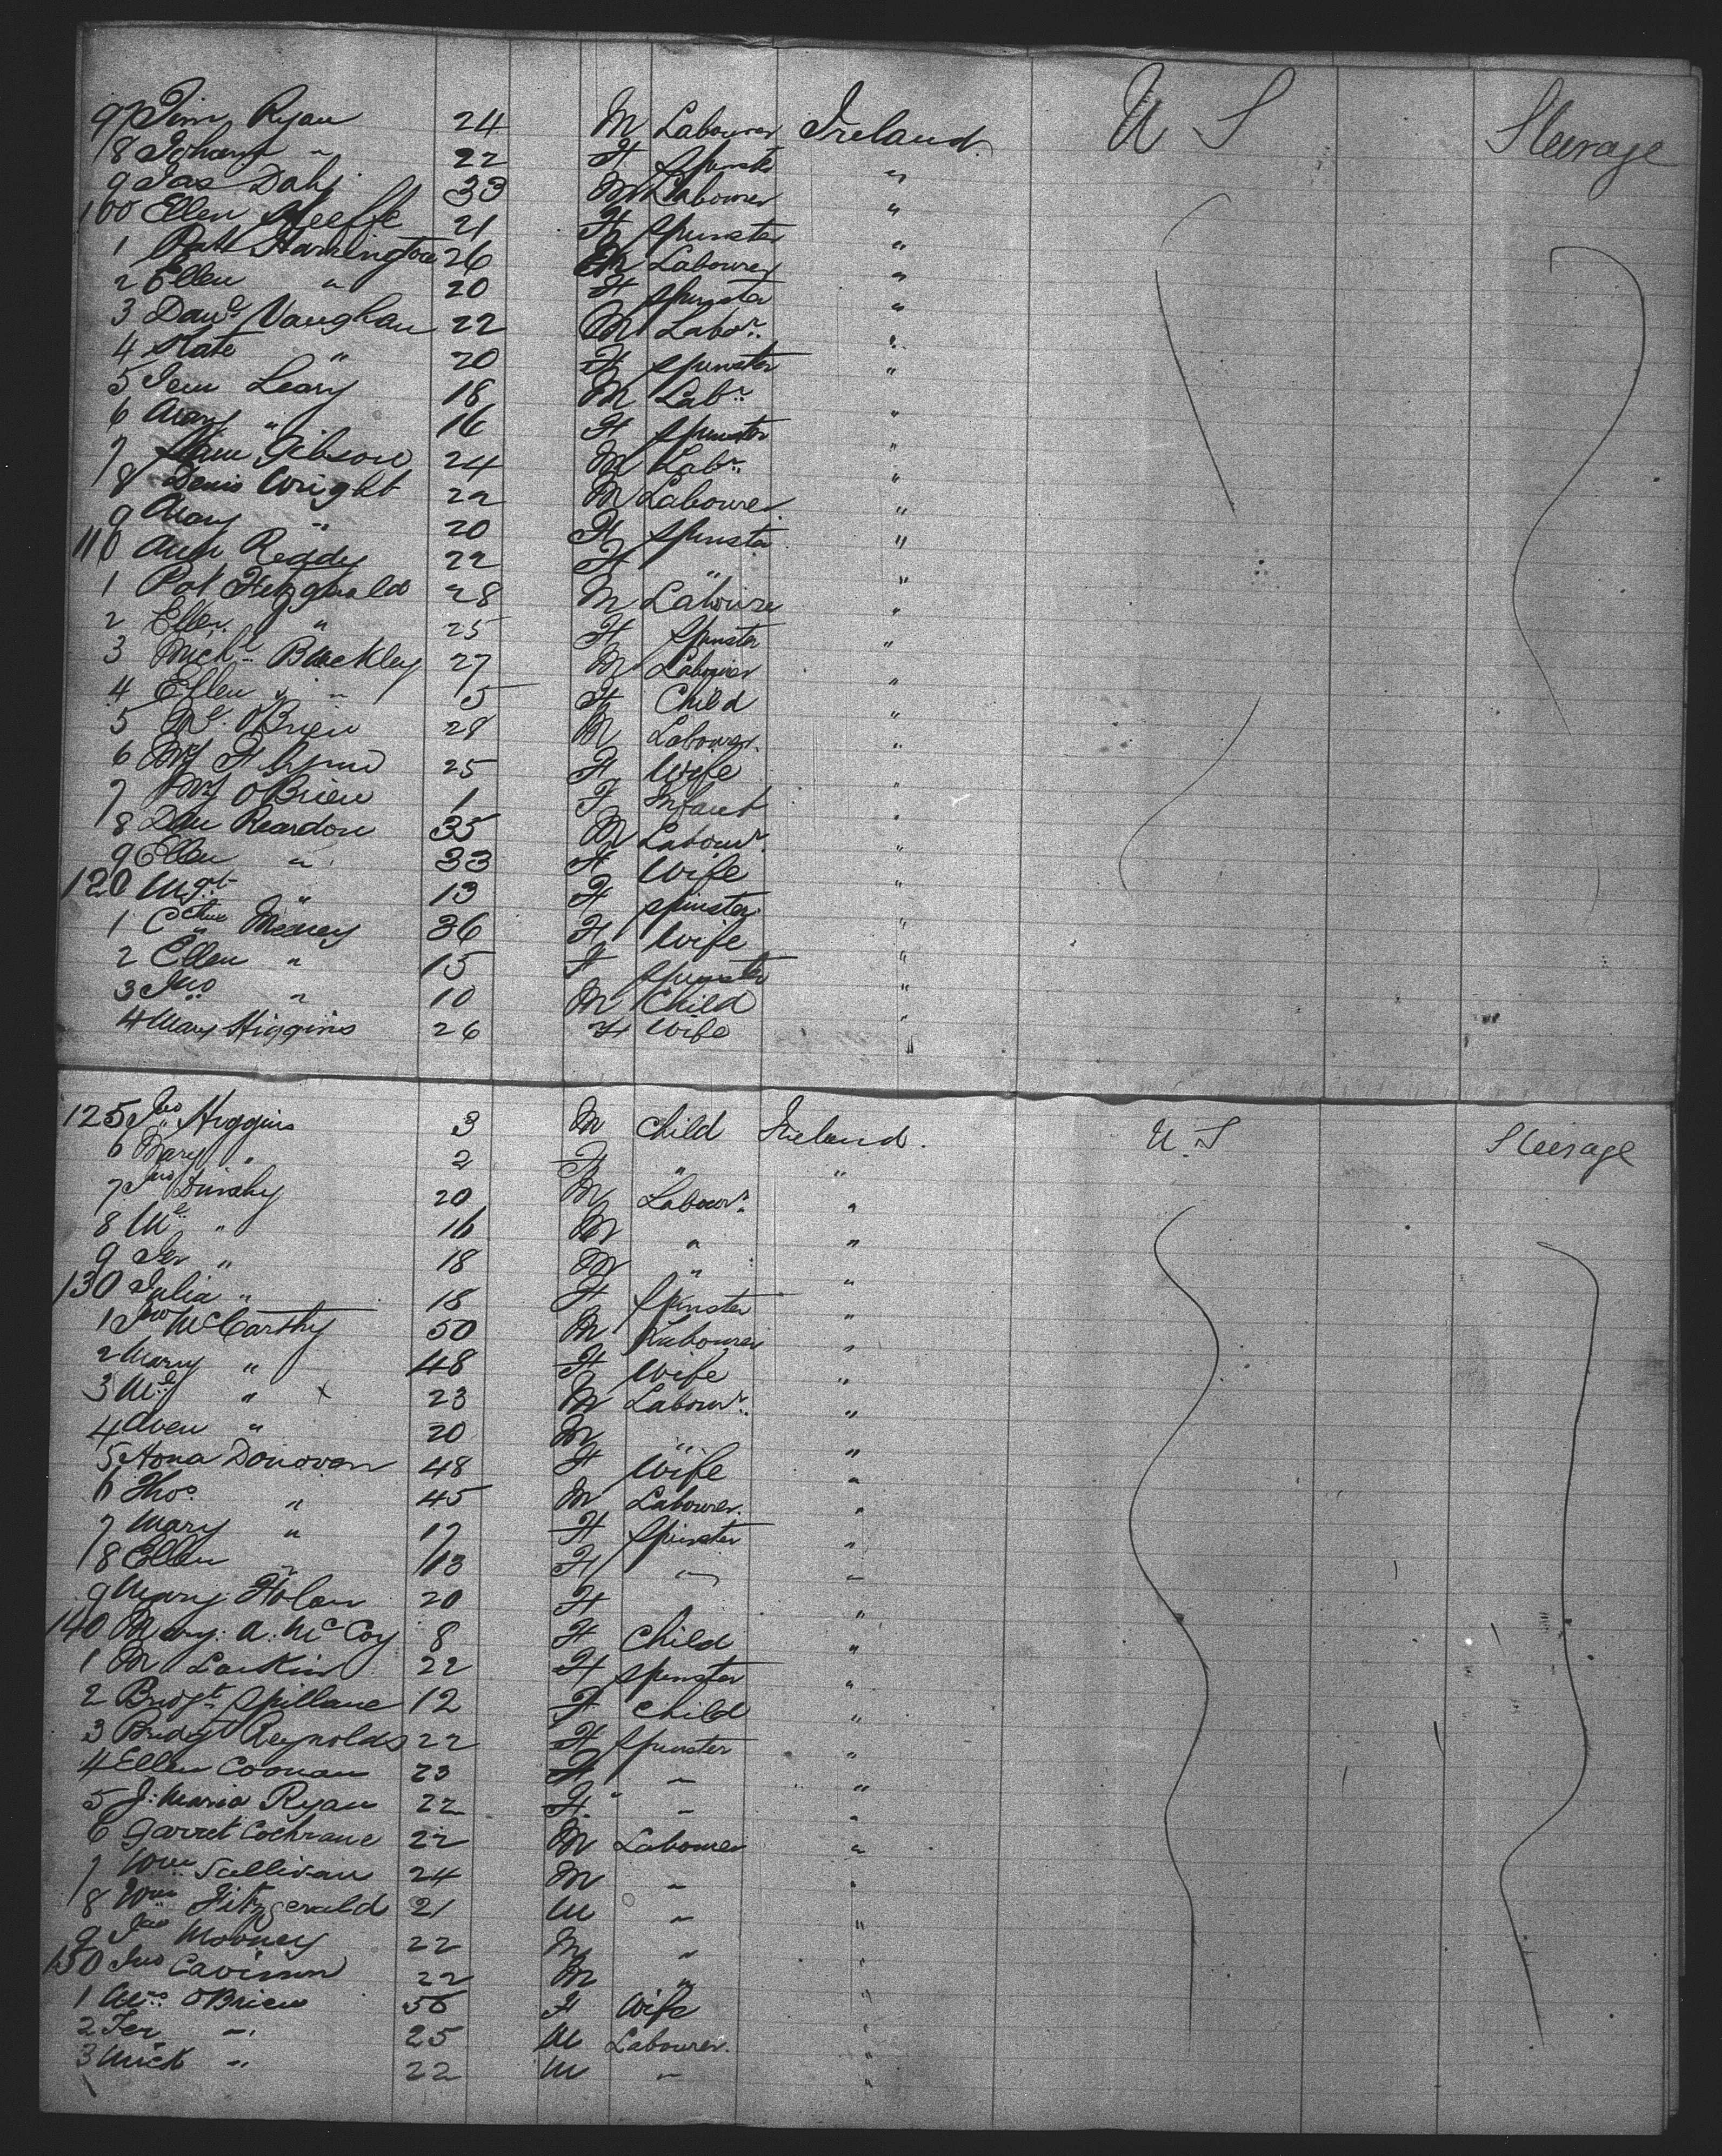 97 Tim Ryan 24 M Labourer Ireland U S Steerage
98 Johana " 22 F Spinster "
9 Jas Daly 33 M Labourer "
100 Ellen Keeffe 21 F Spinster "
1 Patt Harrington 26 M Labourer "
2 Ellen " 20 F Spinster "
3 Danl Vaughan 22 M Labor "
4 Kate " 20 F Spinster "
5 Jem Leary 18 M Labr "
6 Mary " 16 F Spinster "
7 Gibson 24 M Labr "
8 Denis Wright 22 M Labourer "
9 Mary " 20 F Spinster "
110 Ann Reddy 22 F " "
1 Pat Fitzgerald 28 M Labourer "
2 Ellen " 25 F Spinster "
3 Michl Buckley 27 M Labourer "
4 Ellen " 5 F Child "
5 Ml O'Brien 28 M Labourer "
6 My 25 F Wife "
7 My O'Brien 1 F Infant "
8 Dan Reardon 35 M Labour "
9 Ellen " 33 F Wife "
120 Mgt " 13 F Spinster "
1 Cathne 36 F Wife "
2 Ellen " 15 F Spinster "
3 Jno " 10 M Child "
4 Mary Higgins 26 F Wife "
125 Jno Higgins 3 M Child Ireland. U.S Steerage
6 Mary " 2 F " "
7 Jno 20 M Labour "
8 Ml " 16 M " "
9 Jer " 18 M " "
130 Julia " 18 F Spinster "
1 Jno McCarthy 50 M Labourer "
2 Mary " 48 F Wife "
3 Ml " x 23 M Labour "
4 Owen " 20 M " "
5 Hona Donovan 48 F Wife "
6 Thos " 45 M Labourer "
7 Mary " 17 F Spinster "
8 Ellen " 13 F " "
9 Mary 20 F "
140 Mary A. McCoy 8 F Child "
1 M Larkin 22 F Spinster "
2 Bridgt Spillane 12 F Child "
3 Bridgt Reynolds 22 F Spinster "
4 Ellen Coonan 23 F " "
5 J. Maria Ryan 22 F " "
6 Garret Cochrane 22 M Labourer "
7 Wm Sullivan 24 M " "
8 Wm Fitzgerald 21 M " "
9 Jno Mooney 22 M " "
150 Jno 22 M " "
1 O'Brien 56 F Wife "
2 Jer " 25 M Labourer "
3 Mick " 22 M " "